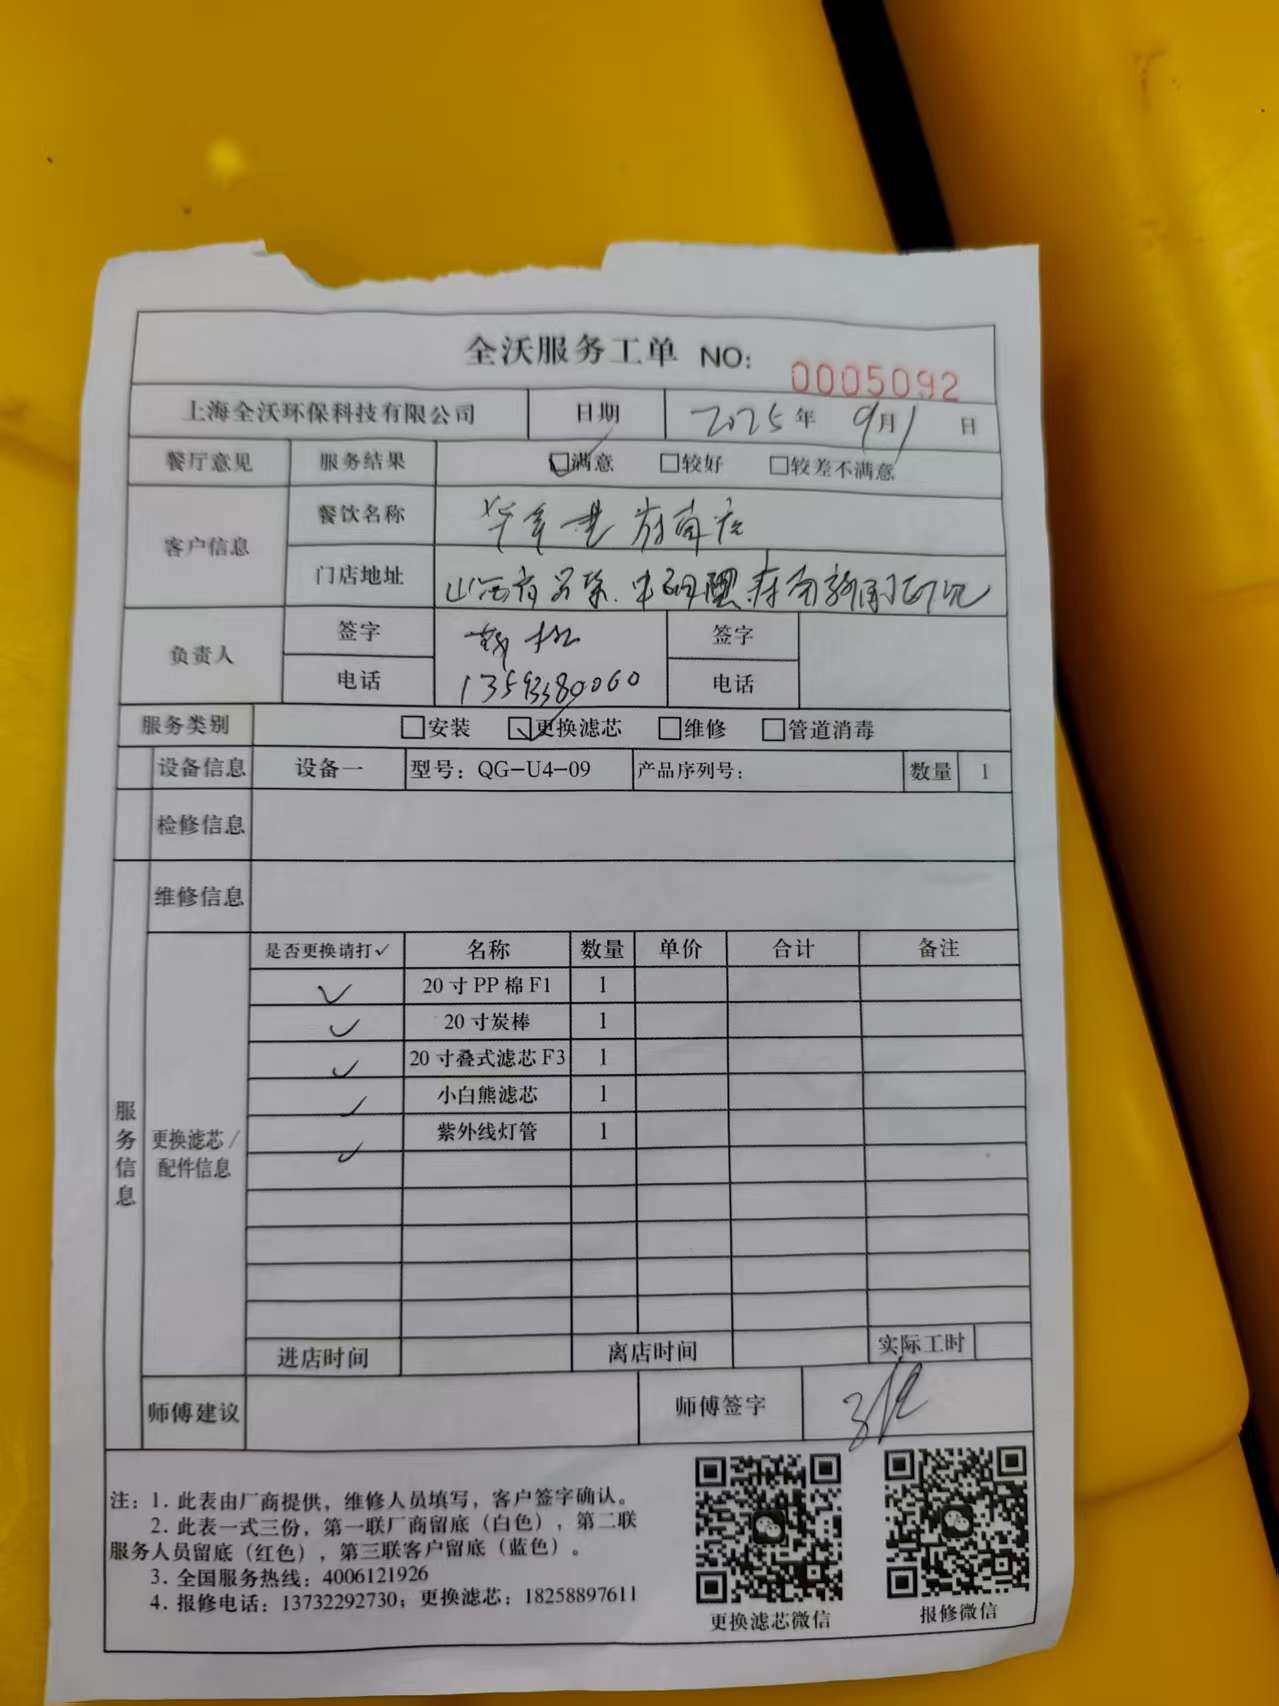 全沃服务工单 NO: 0005092
上海全沃环保科技有限公司 日期 2025年 9月1日
餐厅意见 服务结果 ☑满意 □较好 □较差不满意
客户信息 餐饮名称
门店地址 山西省
负责人 签字 签字
电话 13593380060 电话
服务类别 □安装 ☑更换滤芯 □维修 □管道消毒
设备信息 设备一 型号：QG-U4-09 产品序列号： 数量 1
检修信息
维修信息
服务信息
更换滤芯/配件信息
是否更换请打✓ 名称 数量 单价 合计 备注
✓ 20寸PP棉F1 1
✓ 20寸炭棒 1
✓ 20寸叠式滤芯F3 1
✓ 小白熊滤芯 1
✓ 紫外线灯管 1
进店时间 离店时间 实际工时
师傅建议 师傅签字
注：1. 此表由厂商提供，维修人员填写，客户签字确认。
2. 此表一式三份，第一联厂商留底（白色），第二联
服务人员留底（红色），第三联客户留底（蓝色）。
3. 全国服务热线：4006121926
4. 报修电话：13732292730；更换滤芯：18258897611
更换滤芯微信 报修微信